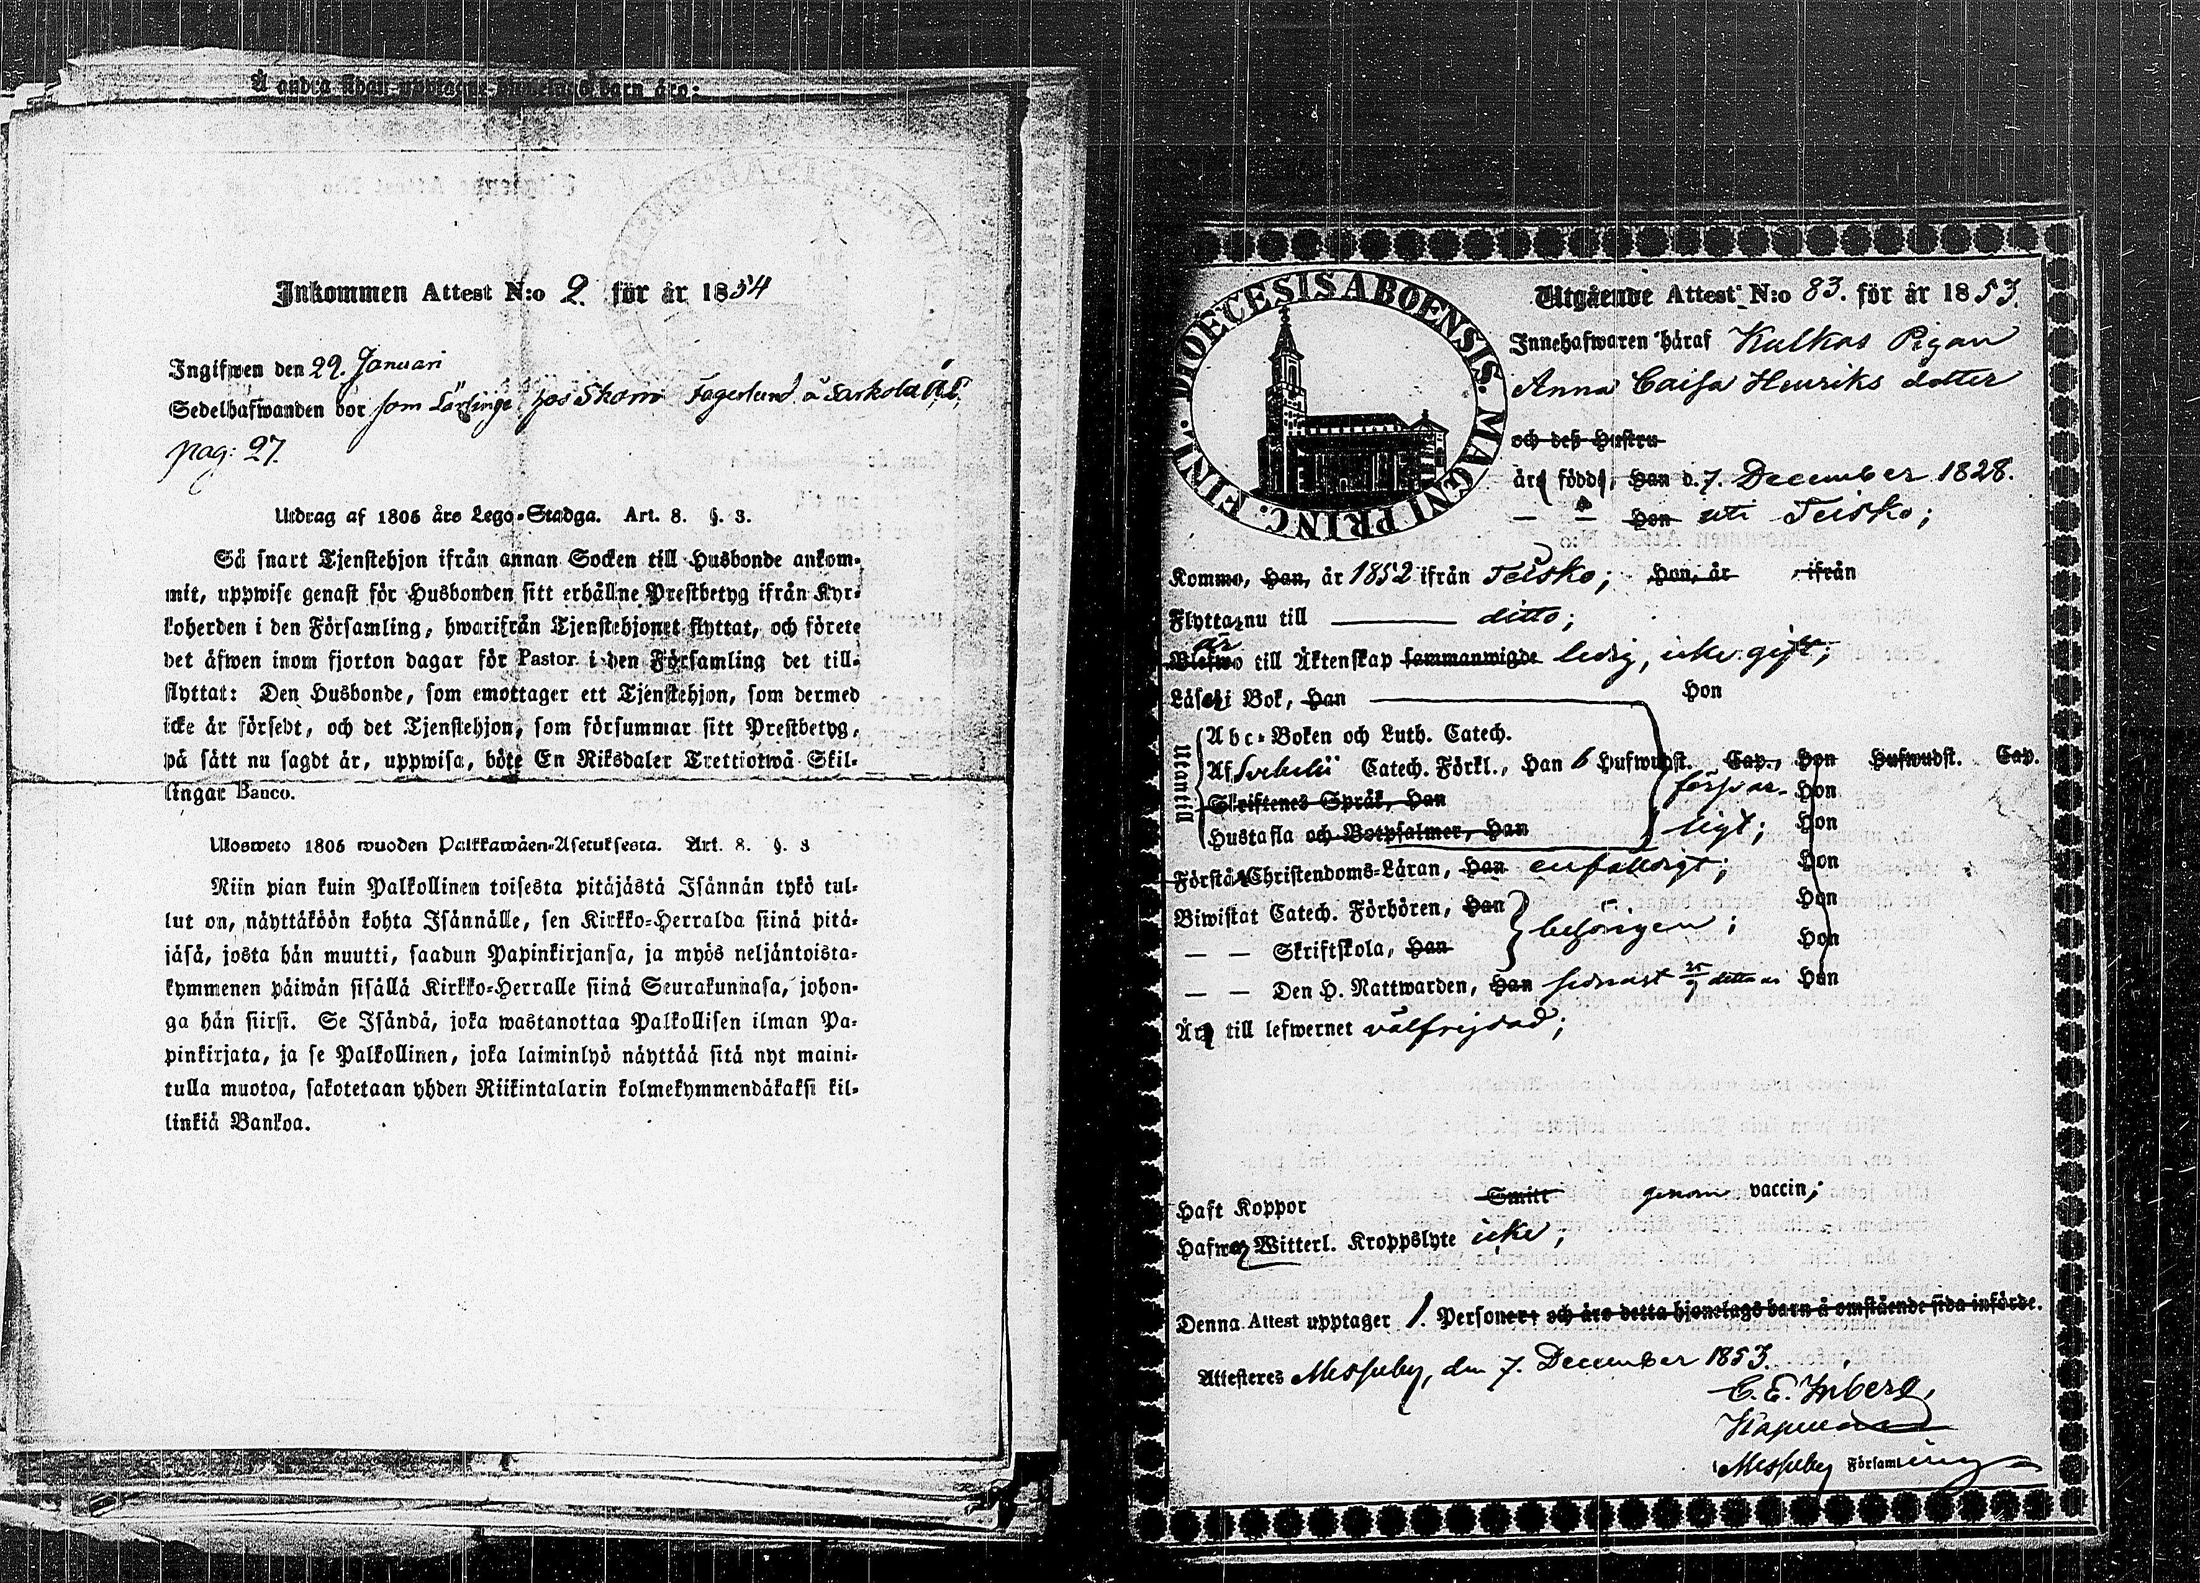 Å andra sidan upptagne hjonelags barn äro:
Inkommen Attest N:o 2. för år 1854
Ingifwen den 29. Januari
Sedelhafwanden bor som Lärlinge hos Skom Fagerlund å Sarkola
pag: 27.
Utdrag af 1805 års Lego-Stadga. Art. 8. §. 3.
Så snart Tjenstehjon ifrån annan Socken till Husbonde ankom-
mit, uppwise genast för Husbonden sitt erhållne Prestbetyg ifrån Kyr-
koherden i den Församling, hwarifrån Tjenstehjonet flyttat, och förete
det äfwen inom fjorton dagar för Pastor i den Församling det till-
flyttat: Den Husbonde, som emottager ett Tjenstehjon, som dermed
icke är försedt, och det Tjenstehjon, som försummar sitt Prestbetyg,
på sätt nu sagdt är, uppwisa, böte En Riksdaler Trettiotwå Skil-
lingar Banco.
Ulosweto 1805 wuoden Palkkawäen-Asetuksesta. Art. 8. §. 3
Niin pian kuin Palkollinen toisesta pitäjästä Isännän tykö tul-
lut on, näyttäköön kohta Isännälle, sen Kirkko-Herralda siinä pitä-
jäsä, josta hän muutti, saadun Papinkirjansa, ja myös neljäntoista-
kymmenen päiwän sisällä Kirkko-Herralle siinä Seurakunnasa, johon-
ga hän siirsi. Se Isändä, joka wastanottaa Palkollisen ilman Pa-
pinkirjata, ja se Palkollinen, joka laiminlyö näyttää sitä nyt maini-
tulla muotoa, sakotetaan yhden Riikintalarin kolmekymmendäkaksi kil-
linkiä Bankoa.
DIOECESIS ABOENSIS. MAGNI PRINC. FINL.
Utgående Attest N:o 83. för år 1853.
Innehafwaren häraf Kulkas Pigan
Anna Caisa Henriks dotter
och deß Hustru
äro födde, Han d. 7. December 1828.
— — Hon uti Teisko;
Kommo, Han, år 1852 ifrån Teisko; Hon, år ifrån
Flytta nu till ——— ditto;
är
Blefwo till Äktenskap sammanwigde ledig, icke gift;
Läser i Bok, Han ——— Hon
Utantill
Abc-Boken och Luth. Catech.
Af Svebelii Catech. Förkl., Han 6 Hufwudst. Cap., Hon Hufwudst. Cap.
Skriftenes Språk, Han försvar- Hon
Hustafla och Botpsalmer, Han ligt; Hon
Förstå Christendoms-Läran, Han enfaldigt; Hon
Biwistat Catech. Förhören, Han behörigen; Hon
— — Skriftskola, Han Hon
— — Den H. Nattwarden, Han sednast 25/9 detta år Hon
Är till lefwernet välfrejdad;
Haft Koppor Smitt genom vaccin;
Hafwa Witterl. Kroppslyte icke;
Denna Attest upptager 1. Personer: och äro detta hjonelags barn å omstående sida införde.
Attesteres Messuby, den 7. December 1853.
C. E. Inberg,
Kapellan
Messuby Församling